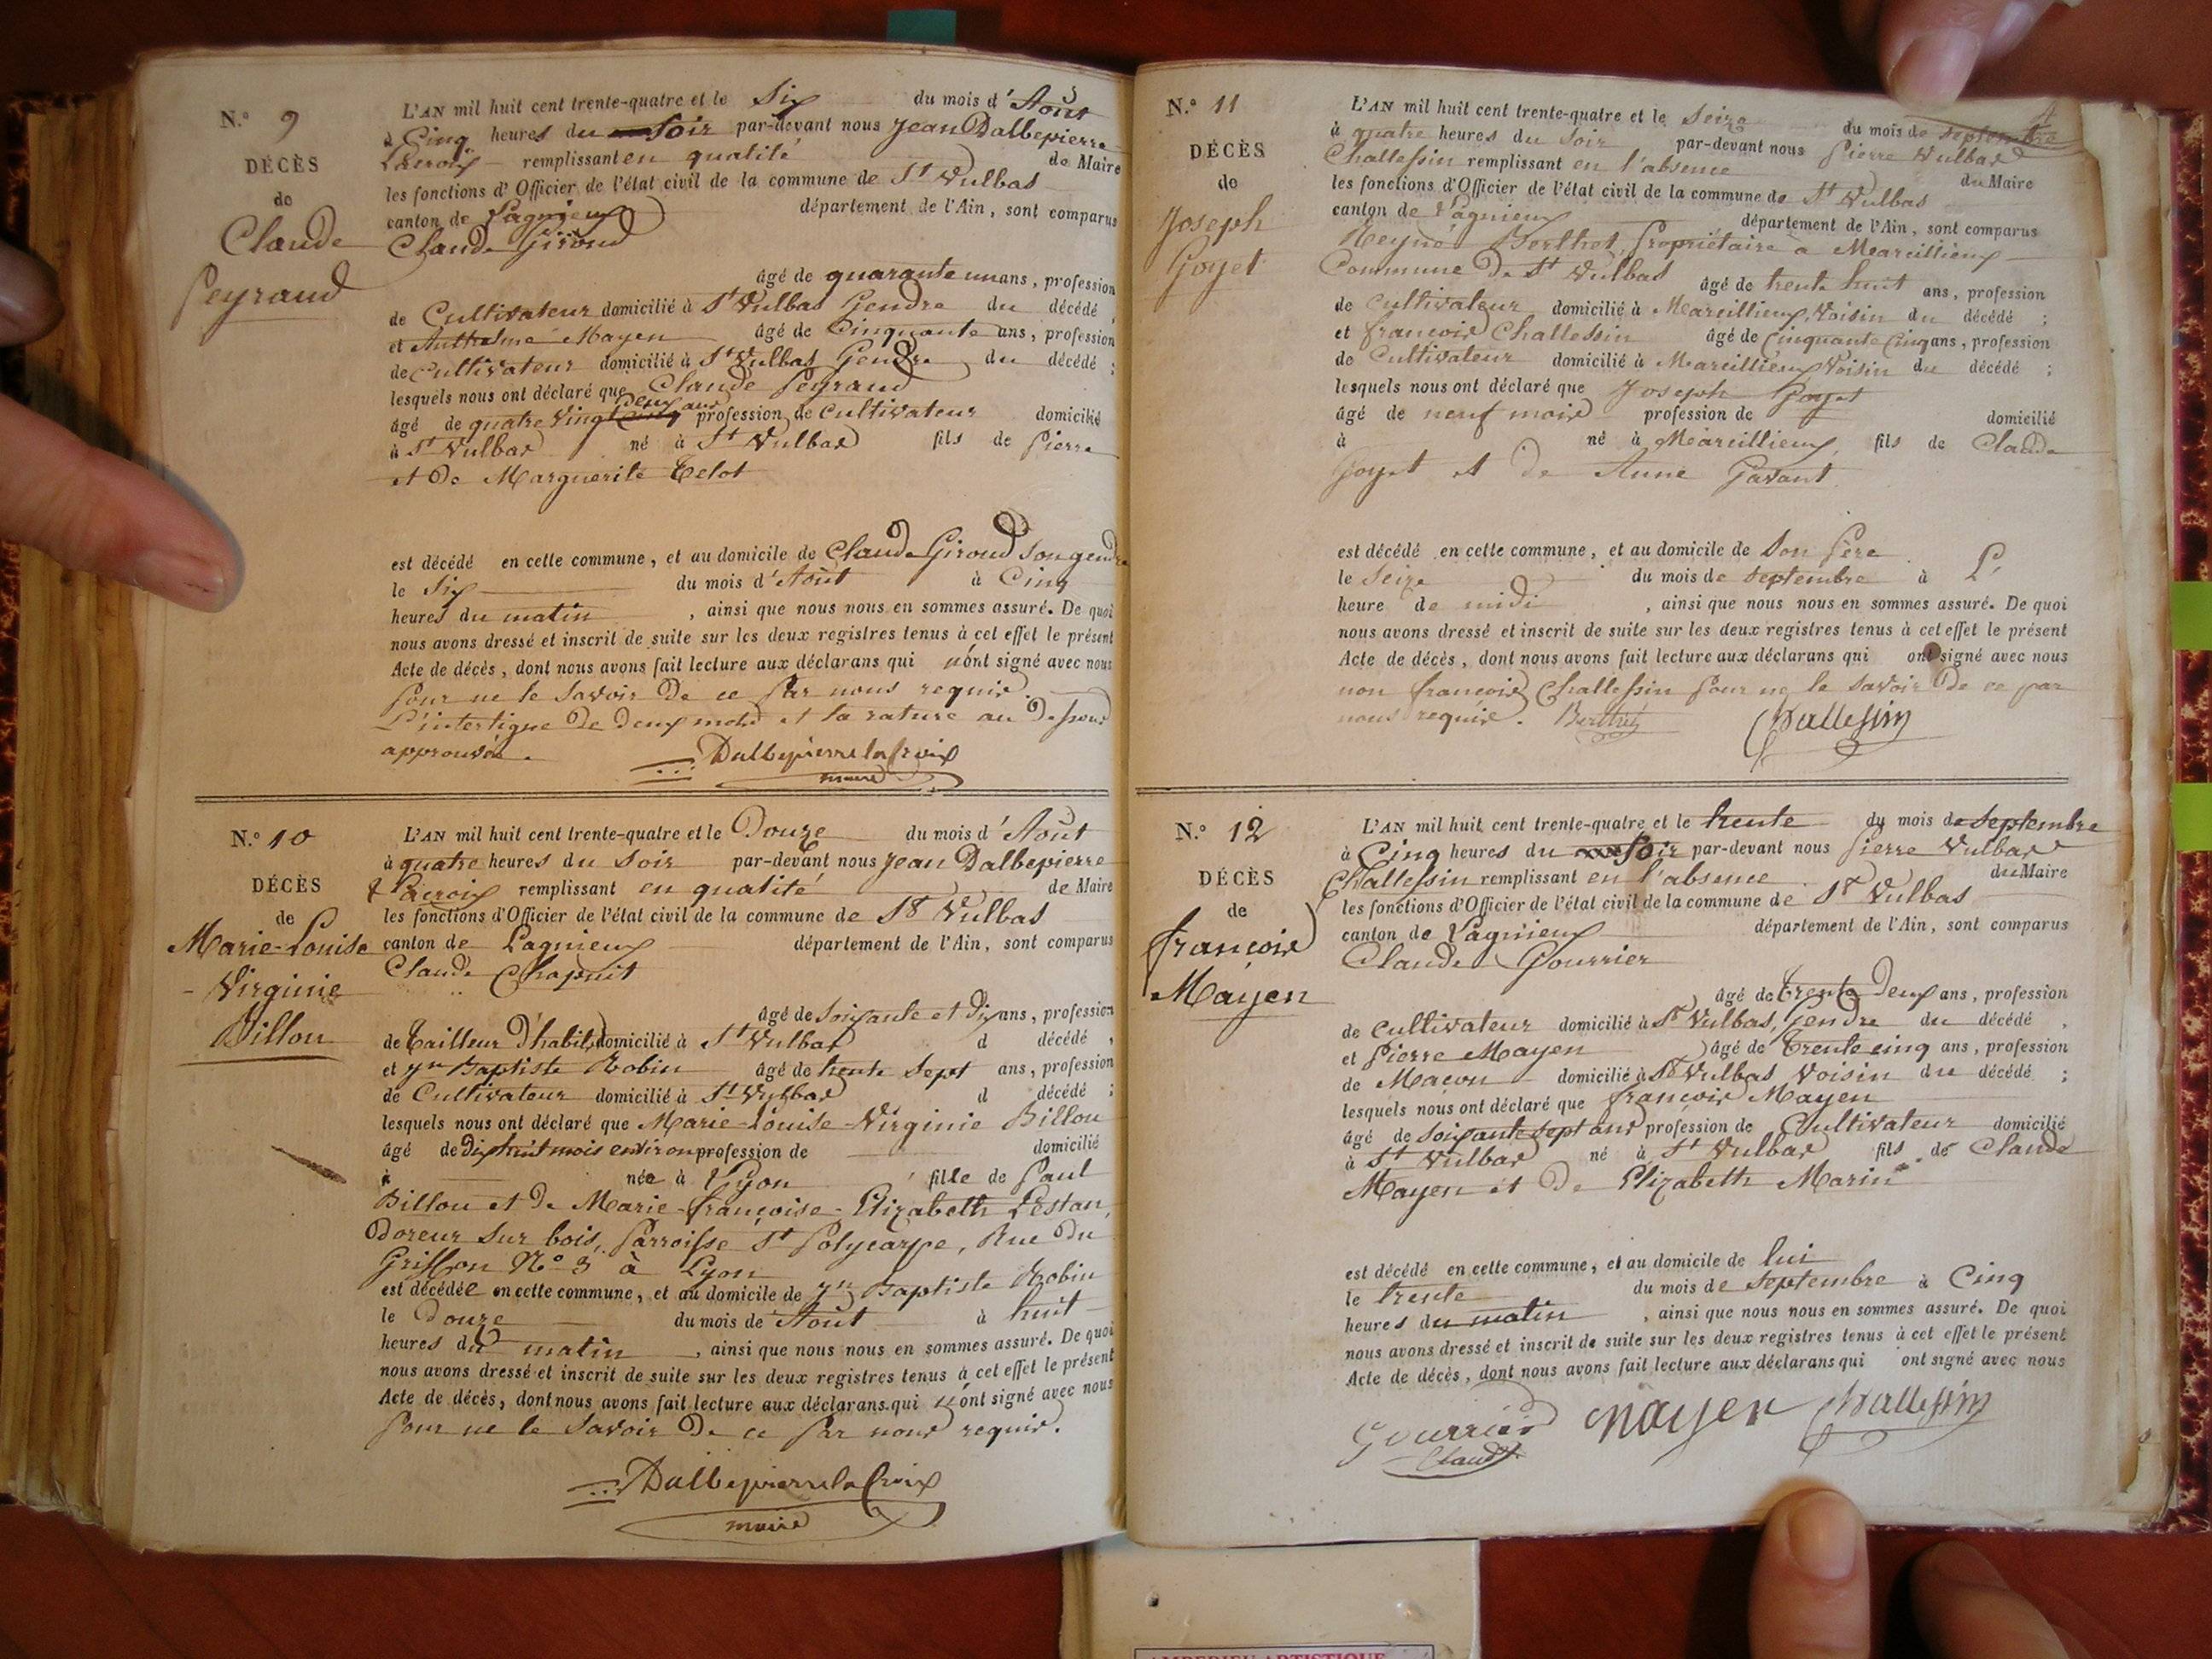 N.° 9
DÉCÈS
de
Claude
Peyraud
L'AN mil huit cent trente-quatre et le Six du mois d'Août
à Cinq heures du soir par-devant nous Jean Dalbepierre
Lacroix remplissant en qualité de Maire
les fonctions d'Officier de l'état civil de la commune de St Vulbas
canton de Lagnieux département de l'Ain, sont comparus
Claude Giroud
âgé de quarante un ans, profession
de Cultivateur domicilié à St Vulbas Gendre du décédé,
et Anthelme Mayen âgé de Cinquante ans, profession
de Cultivateur domicilié à St Vulbas Gendre du décédé;
lesquels nous ont déclaré que Claude Peyraud
deux ans
âgé de quatre vingt cinq profession de Cultivateur domicilié
à St Vulbas né à St Vulbas fils de Pierre
et de Marguerite Tetot
est décédé en cette commune, et au domicile de Claude Giroud son gendre
le Six du mois d'Août à Cinq
heures du matin, ainsi que nous nous en sommes assuré. De quoi
nous avons dressé et inscrit de suite sur les deux registres tenus à cet effet le présent
Acte de décès, dont nous avons fait lecture aux déclarans qui n'ont signé avec nous
pour ne le savoir de ce par nous requis.
L'interligne de deux mots et la rature au dessous
approuvée.
Dalbepierre la Croix
maire
N.° 10
DÉCÈS
de
Marie-Louise
- Virginie
Billou
L'AN mil huit cent trente-quatre et le Douze du mois d'Août
à quatre heures du soir par-devant nous Jean Dalbepierre
Lacroix remplissant en qualité de Maire
les fonctions d'Officier de l'état civil de la commune de St Vulbas
canton de Lagnieux département de l'Ain, sont comparus
Claude Chapuit
âgé de Soixante et Dix ans, profession
de Tailleur d'habits domicilié à St Vulbas d décédé,
et Jn Baptiste Robin âgé de trente sept ans, profession
de Cultivateur domicilié à St Vulbas d décédé;
lesquels nous ont déclaré que Marie-Louise-Virginie Billou
âgé de Dix huit mois environ profession de domicilié
à née à Lyon fille de Paul
Billou et de Marie-françoise-Elizabeth Lestan,
Doreur sur bois, Parroisse St Polycarpe, Rue du
Griffon N° 3 à Lyon
est décédée en cette commune, et au domicile de Jn Baptiste Robin
le Douze du mois de Août à huit
heures du matin, ainsi que nous nous en sommes assuré. De quoi
nous avons dressé et inscrit de suite sur les deux registres tenus à cet effet le présent
Acte de décès, dont nous avons fait lecture aux déclarans qui n'ont signé avec nous
pour ne le savoir de ce par nous requis.
Dalbepierre la Croix
maire
N.° 11
DÉCÈS
de
Joseph
Goyet
L'AN mil huit cent trente-quatre et le Seize du mois de septembre
à quatre heures du soir par-devant nous Pierre Vulbas
Challessin remplissant en l'absence du Maire
les fonctions d'Officier de l'état civil de la commune de St Vulbas
canton de Lagnieux département de l'Ain, sont comparus
Berthet, Propriétaire a Marcillieux
Commune de St Vulbas âgé de trente huit ans, profession
de Cultivateur domicilié à Marcillieux, Voisin du décédé;
et françois Challessin âgé de Cinquante Cinq ans, profession
de Cultivateur domicilié à Marcillieux Voisin du décédé;
lesquels nous ont déclaré que Joseph Goyet
âgé de neuf mois profession de domicilié
à né à Marcillieux, fils de Claude
Goyet et de Anne Gavant
est décédé en cette commune, et au domicile de Son Père
le Seize du mois de septembre à L'
heure de midi, ainsi que nous nous en sommes assuré. De quoi
nous avons dressé et inscrit de suite sur les deux registres tenus à cet effet le présent
Acte de décès, dont nous avons fait lecture aux déclarans qui ont signé avec nous
non françois Challessin pour ne le savoir de ce par
nous requis. Berthet Challessin
N.° 12
DÉCÈS
de
françois
Mayen
L'AN mil huit cent trente-quatre et le trente du mois de septembre
à Cinq heures du soir par-devant nous Pierre Vulbas
Challessin remplissant en l'absence du Maire
les fonctions d'Officier de l'état civil de la commune de St Vulbas
canton de Lagnieux département de l'Ain, sont comparus
Claude Gourrier
âgé de trente Deux ans, profession
de Cultivateur domicilié à St Vulbas, Gendre du décédé,
et Pierre Mayen âgé de trente cinq ans, profession
de Macon domicilié à St Vulbas Voisin du décédé;
lesquels nous ont déclaré que françois Mayen
âgé de soixante sept ans profession de Cultivateur domicilié
à St Vulbas né à St Vulbas fils de Claude
Mayen et de Elizabeth Marin
est décédé en cette commune, et au domicile de lui
le trente du mois de septembre à Cinq
heures du matin, ainsi que nous nous en sommes assuré. De quoi
nous avons dressé et inscrit de suite sur les deux registres tenus à cet effet le présent
Acte de décès, dont nous avons fait lecture aux déclarans qui ont signé avec nous
Gourrier Mayen Challessin
Claude
AMBERIEU ARTISTIQUE